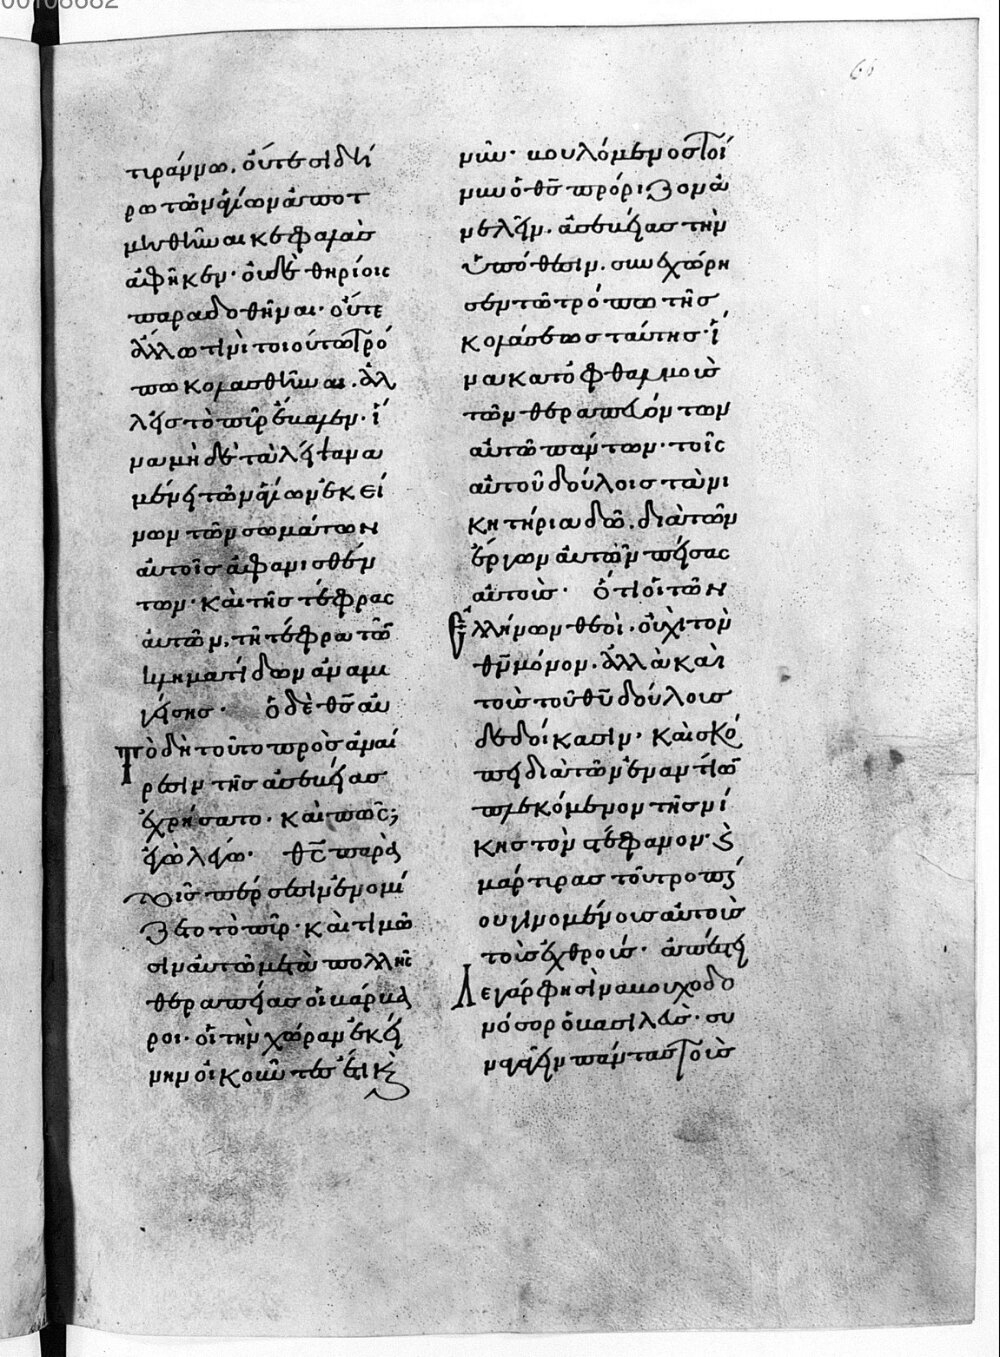 00108682
61
τυράννω. οὔτε σιδή
ρω τῶν ἁγίων ἀποτ
μηθῆναι κεφαλὰς
ἀφῆκεν· οὐδὲ θηρίοις
παραδοθῆναι· οὔτε
ἄλλω τινὶ τοιούτω τρό
πω κολασθῆναι. ἀλ
λ' εἰς τὸ πῦρ ἔβαλεν· ἵ
να μὴ δὲ τὰ λείψανα
μένη τῶν ἁγίων ἐκεί
νων τῶν σωμάτων
αὐτοῖς ἀφανισθέν
των· καὶ τῆς τέφρας
αὐτῶν, τῆ τέφρα τῶν
κληματίδων ἀναμι
γείσης· ὁ δὲ θς αυ
τὸ δὴ τοῦτο πρὸς ἀναί
ρεσιν τῆς ἀσεβείας
ἐχρήσατο· καὶ πῶς;
ἐγὼ λέγω· θς παρὰ
τοῖς πέρσεσιν ἐνομί
ζετο τὸ πῦρ· καὶ τιμῶ
σιν αὐτῶ μετὰ πολλῆς
θεραπείας οἱ βάρβα
ροι· οἱ τὴν χώραν ἐκεί
νην οἰκοῦντες ἔτι κ
νῦν· βουλόμενος τοί
νυν ὁ θς πρόριζον ἀ
νελεῖν. ἀσεβείας τὴν
ὑπόθεσιν. συνεχώρη
σεν τῶ τρόπω τῆς
κολάσεως ταύτης· ἵ
να κατ' ὀφθαλμοὺς
τῶν θεραπευόντων
αὐτῶ πάντων· τοῖς
αὐτοῦ δούλοις τὰ νι
κητήρια δῶ. διὰ τῶν
ἔργων αὐτῶν πείσας
αὐτοὺς· ὅτι οἱ τῶν
ἑλλήνων θεοὶ· οὐχὶ τὸν
θν μόνον. ἀλλὰ καὶ
τοὺς τοῦ θυ δούλους
δεδοίκασιν· καὶ σκό
πει διὰ τῶν ἐναντίων
πλεκόμενον τῆς νί
κης τὸν στέφανον· κ
μάρτυρας τοῦ τροπαί
ου γινομένους αὐτοὺς
τοὺς ἐχθροὺς· ἀπέστει
λε γάρ φησὶ ναβουχοδο
νόσορ ὁ βασιλεὺς· συ
ναγαγεῖν πάντας τοὺς